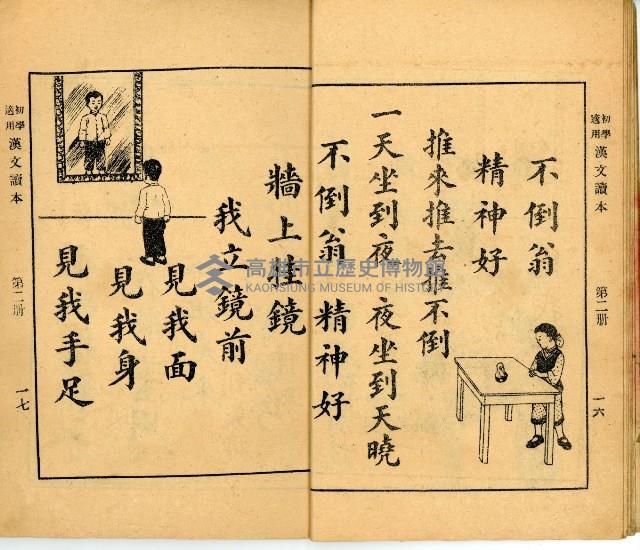 初學適用 漢文讀本 第二册 一六
不倒翁
精神好
推來推去推不倒
一天坐到夜 夜坐到天曉
不倒翁 精神好
牆上挂鏡
我立鏡前
見我面
見我身
見我手足
初學適用 漢文讀本 第二册 一七
高雄市立歷史博物館
KAOHSIUNG MUSEUM OF HISTORY